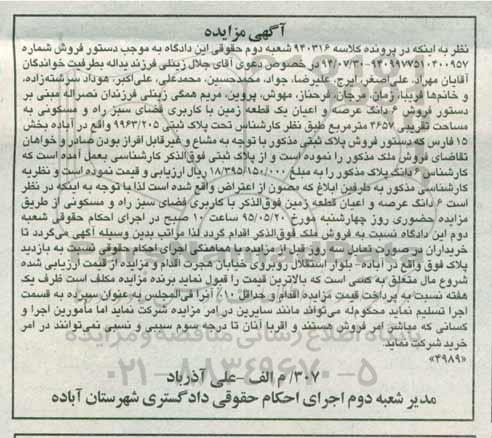 آگهی مزایده
نظر به اینکه در پرونده کلاسه ۹۴۰۳۱۶ شعبه دوم حقوقی این دادگاه به موجب دستور فروش شماره
۹۴۰۹۹۷۷۵۱۰۴۰۰۹۵۷-۹۴/۰۷/۳۰ در خصوص دعوی آقای جلال زینلی فرزند یداله بطرفیت خواندگان
آقایان مهراد، علی‌اصغر، ایرج، علیرضا، جواد، محمدحسین، محمدعلی، علی‌اکبر، هوداد سرشته‌زاده،
و خانم‌ها فریبا، زمان، مرجان، فرحناز، مهوش، پروین، مریم همگی زینلی فرزندان نصراله مبنی بر
دستور فروش ۶ دانگ عرصه و اعیان یک قطعه زمین با کاربری فضای سبز راه و مسکونی به
مساحت تقریبی ۳۶۵۷ مترمربع طبق نظر کارشناس تحت پلاک ثبتی ۹۹۶۳/۲۰۵ واقع در آباده بخش
۱۵ فارس که دستور فروش پلاک ثبتی مذکور با توجه به مشاع و غیرقابل افراز بودن صادر و خواهان
تقاضای فروش ملک مذکور را نموده است و از پلاک ثبتی فوق‌الذکر کارشناسی بعمل آمده است که
کارشناس ۶ دانگ پلاک مذکور را به مبلغ ۱۸/۳۹۵/۱۵۰/۰۰۰ ریال ارزیابی و قیمت نموده است و نظریه
کارشناسی مذکور به طرفین ابلاغ که مصون از اعتراض واقع شده است لذا با توجه به اینکه در نظر
است ۶ دانگ عرصه و اعیان قطعه زمین فوق‌الذکر با کاربری فضای سبز راه و مسکونی از طریق
مزایده حضوری روز چهارشنبه مورخ ۹۵/۰۵/۲۰ ساعت ۱۰ صبح در اجرای احکام حقوقی شعبه
دوم این دادگاه نسبت به فروش ملک فوق‌الذکر اقدام گردد لذا مراتب بدین وسیله آگهی می‌گردد تا
خریداران در صورت تمایل سه روز قبل از مزایده با هماهنگی اجرای احکام حقوقی نسبت به بازدید
پلاک فوق واقع در آباده- بلوار استقلال روبروی خیابان هجرت اقدام و مزایده از قیمت ارزیابی شده
شروع مال متعلق به کسی است که بالاترین قیمت را قبول نماید برنده مزایده مکلف است ظرف یک
هفته نسبت به پرداخت قیمت مزایده اقدام و حداقل ۱۰٪ آنرا فی‌المجلس به عنوان سپرده به قسمت
اجرا تسلیم نماید محکوم‌له می‌تواند مانند سایرین در امر مزایده شرکت نماید اما مأمورین اجرا و
کسانی که مباشر امر فروش هستند و اقربا آنان تا درجه سوم سببی و نسبی نمی‌توانند در امر
خرید شرکت نماید.
«۴۹۸۹»
۳۰۷/ م الف -علی آذرباد
مدیر شعبه دوم اجرای احکام حقوقی دادگستری شهرستان آباده
۰۲۱-۸۸۳۴۹۶۷۰-۵